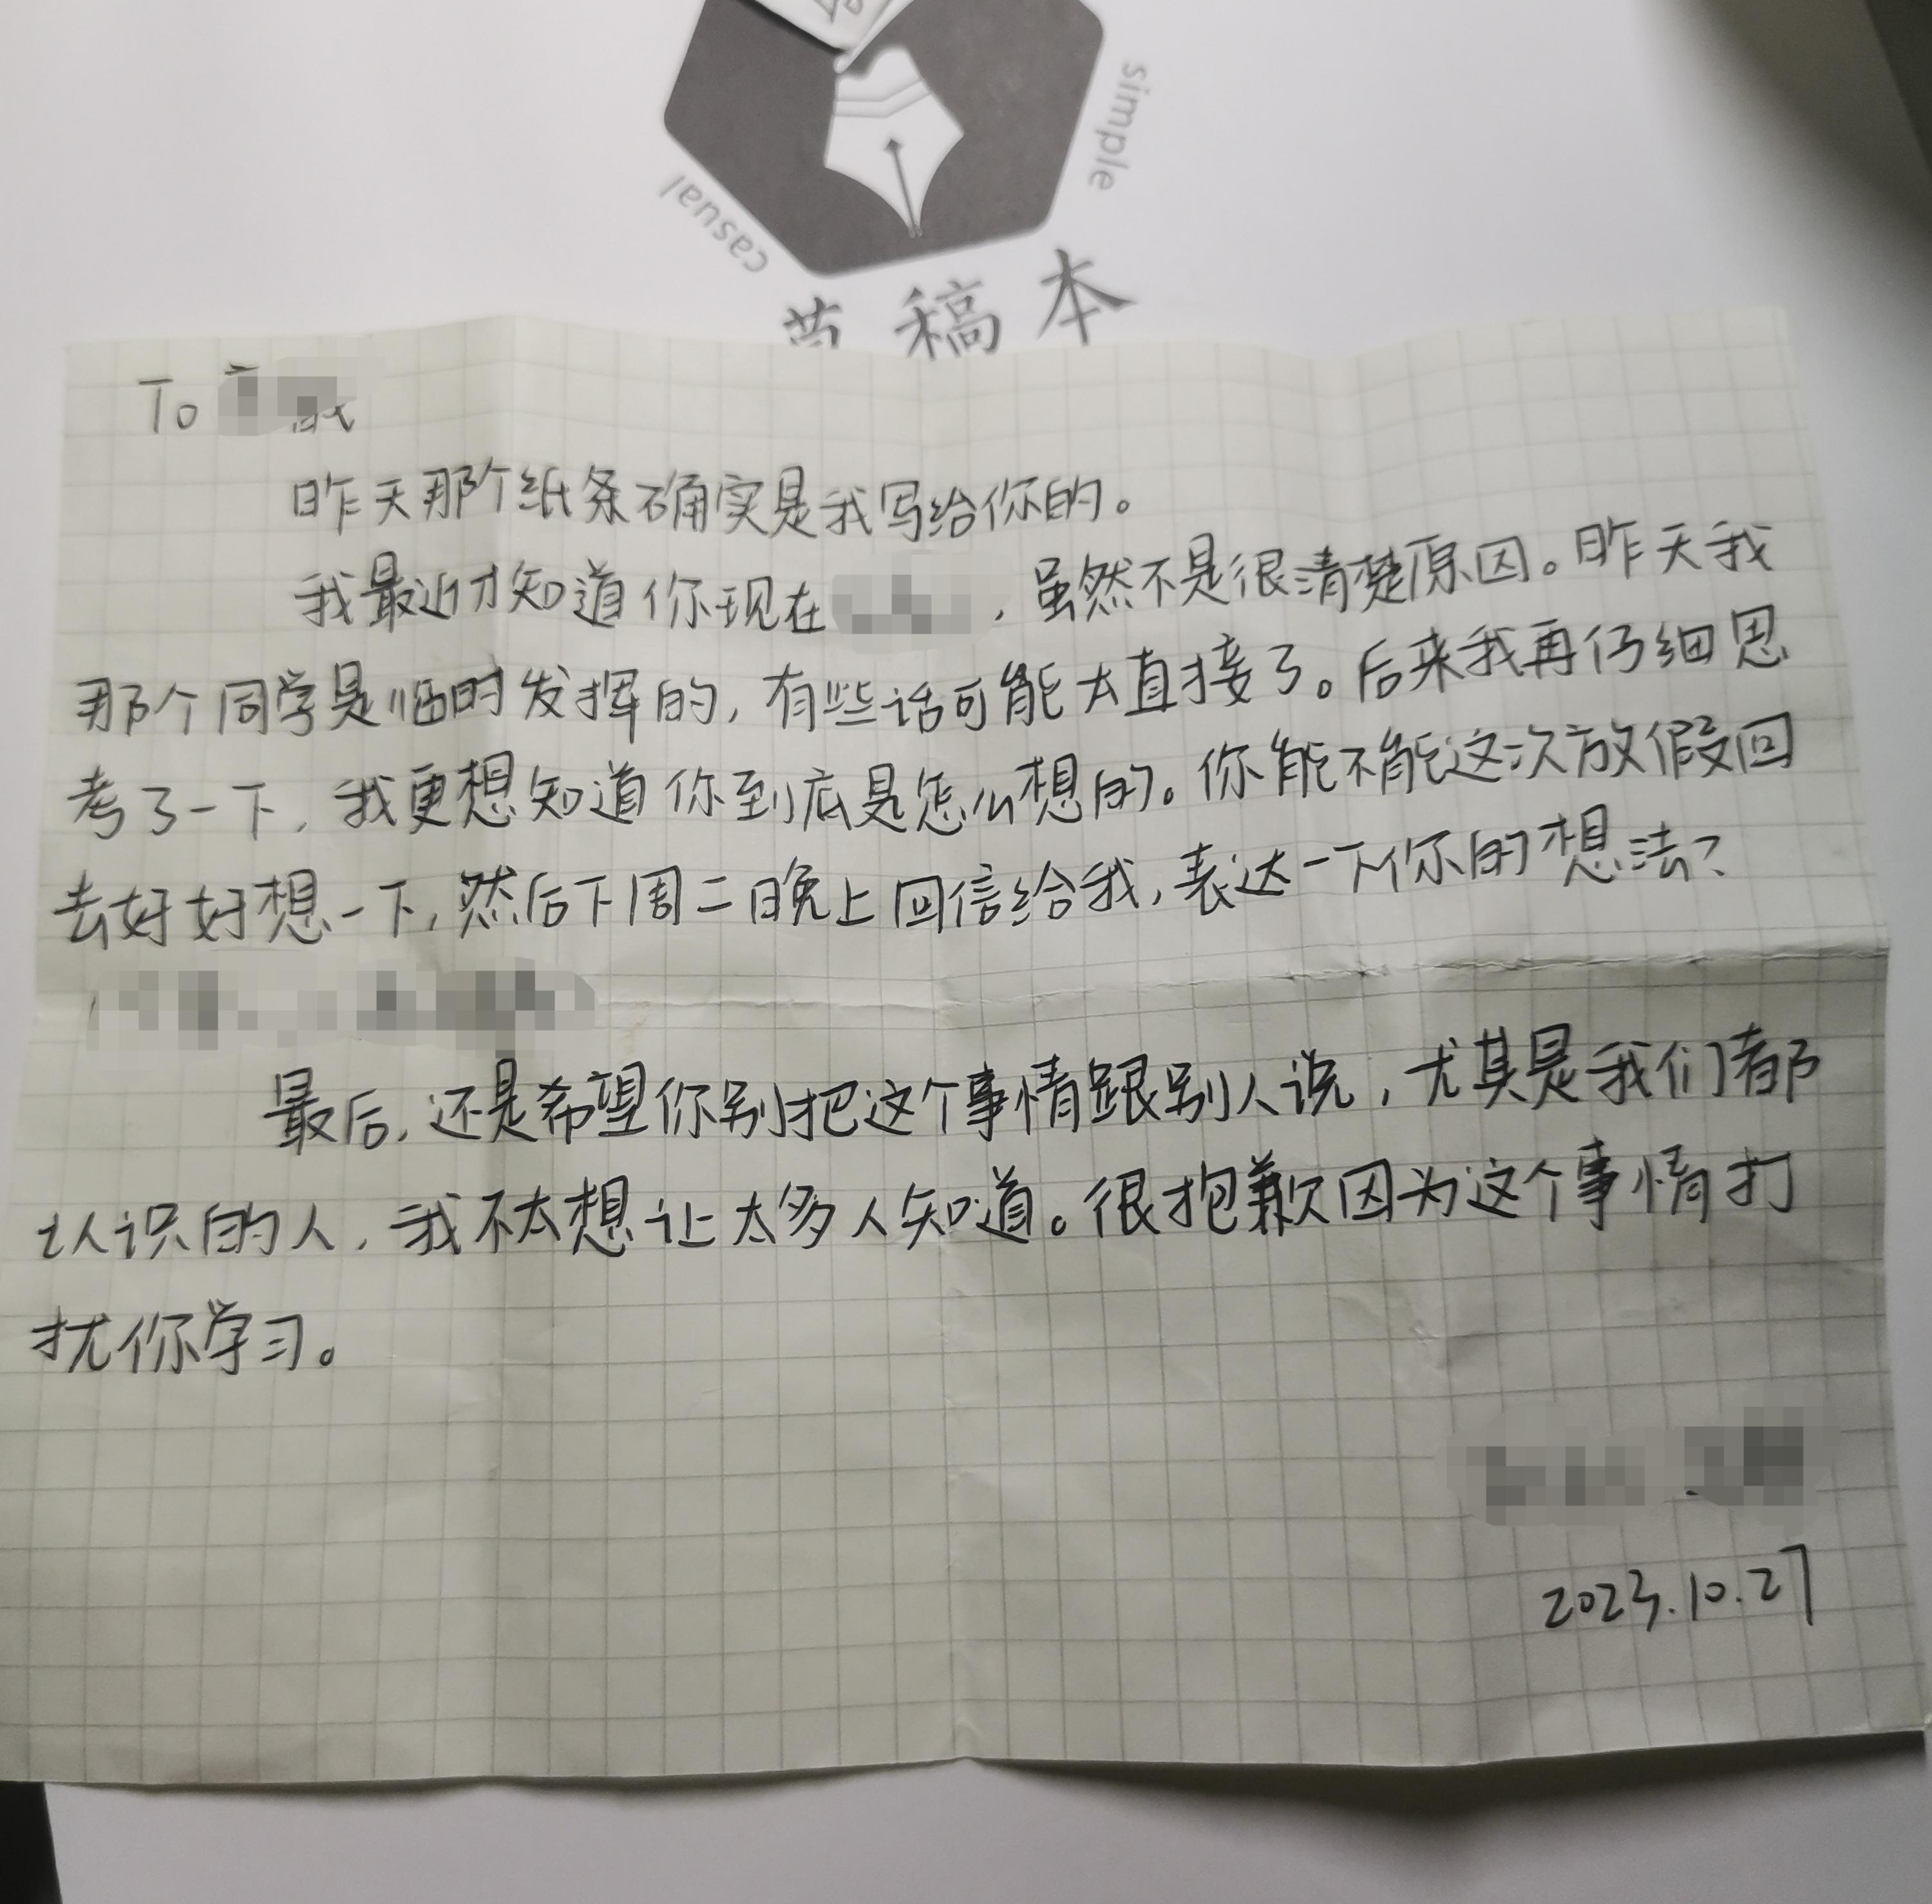 simple
casual
草稿本
To
昨天那个纸条确实是我写给你的。
我最近才知道你现在，虽然不是很清楚原因。昨天我
那个同学是临时发挥的，有些话可能太直接了。后来我再仔细思
考了一下，我更想知道你到底是怎么想的。你能不能这次放假回
去好好想一下，然后下周二晚上回信给我，表达一下你的想法？
最后，还是希望你别把这个事情跟别人说，尤其是我们都
认识的人，我不太想让太多人知道。很抱歉因为这个事情打
扰你学习。
2023.10.27